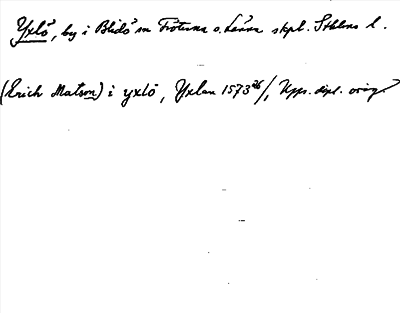 Yxlö, by i Blidö sn Frötuna o. Länna skpl. Sthlms l.
(Erich Matson) i yxlö, Yxlan 1573 26/, Upps. dipl. orig